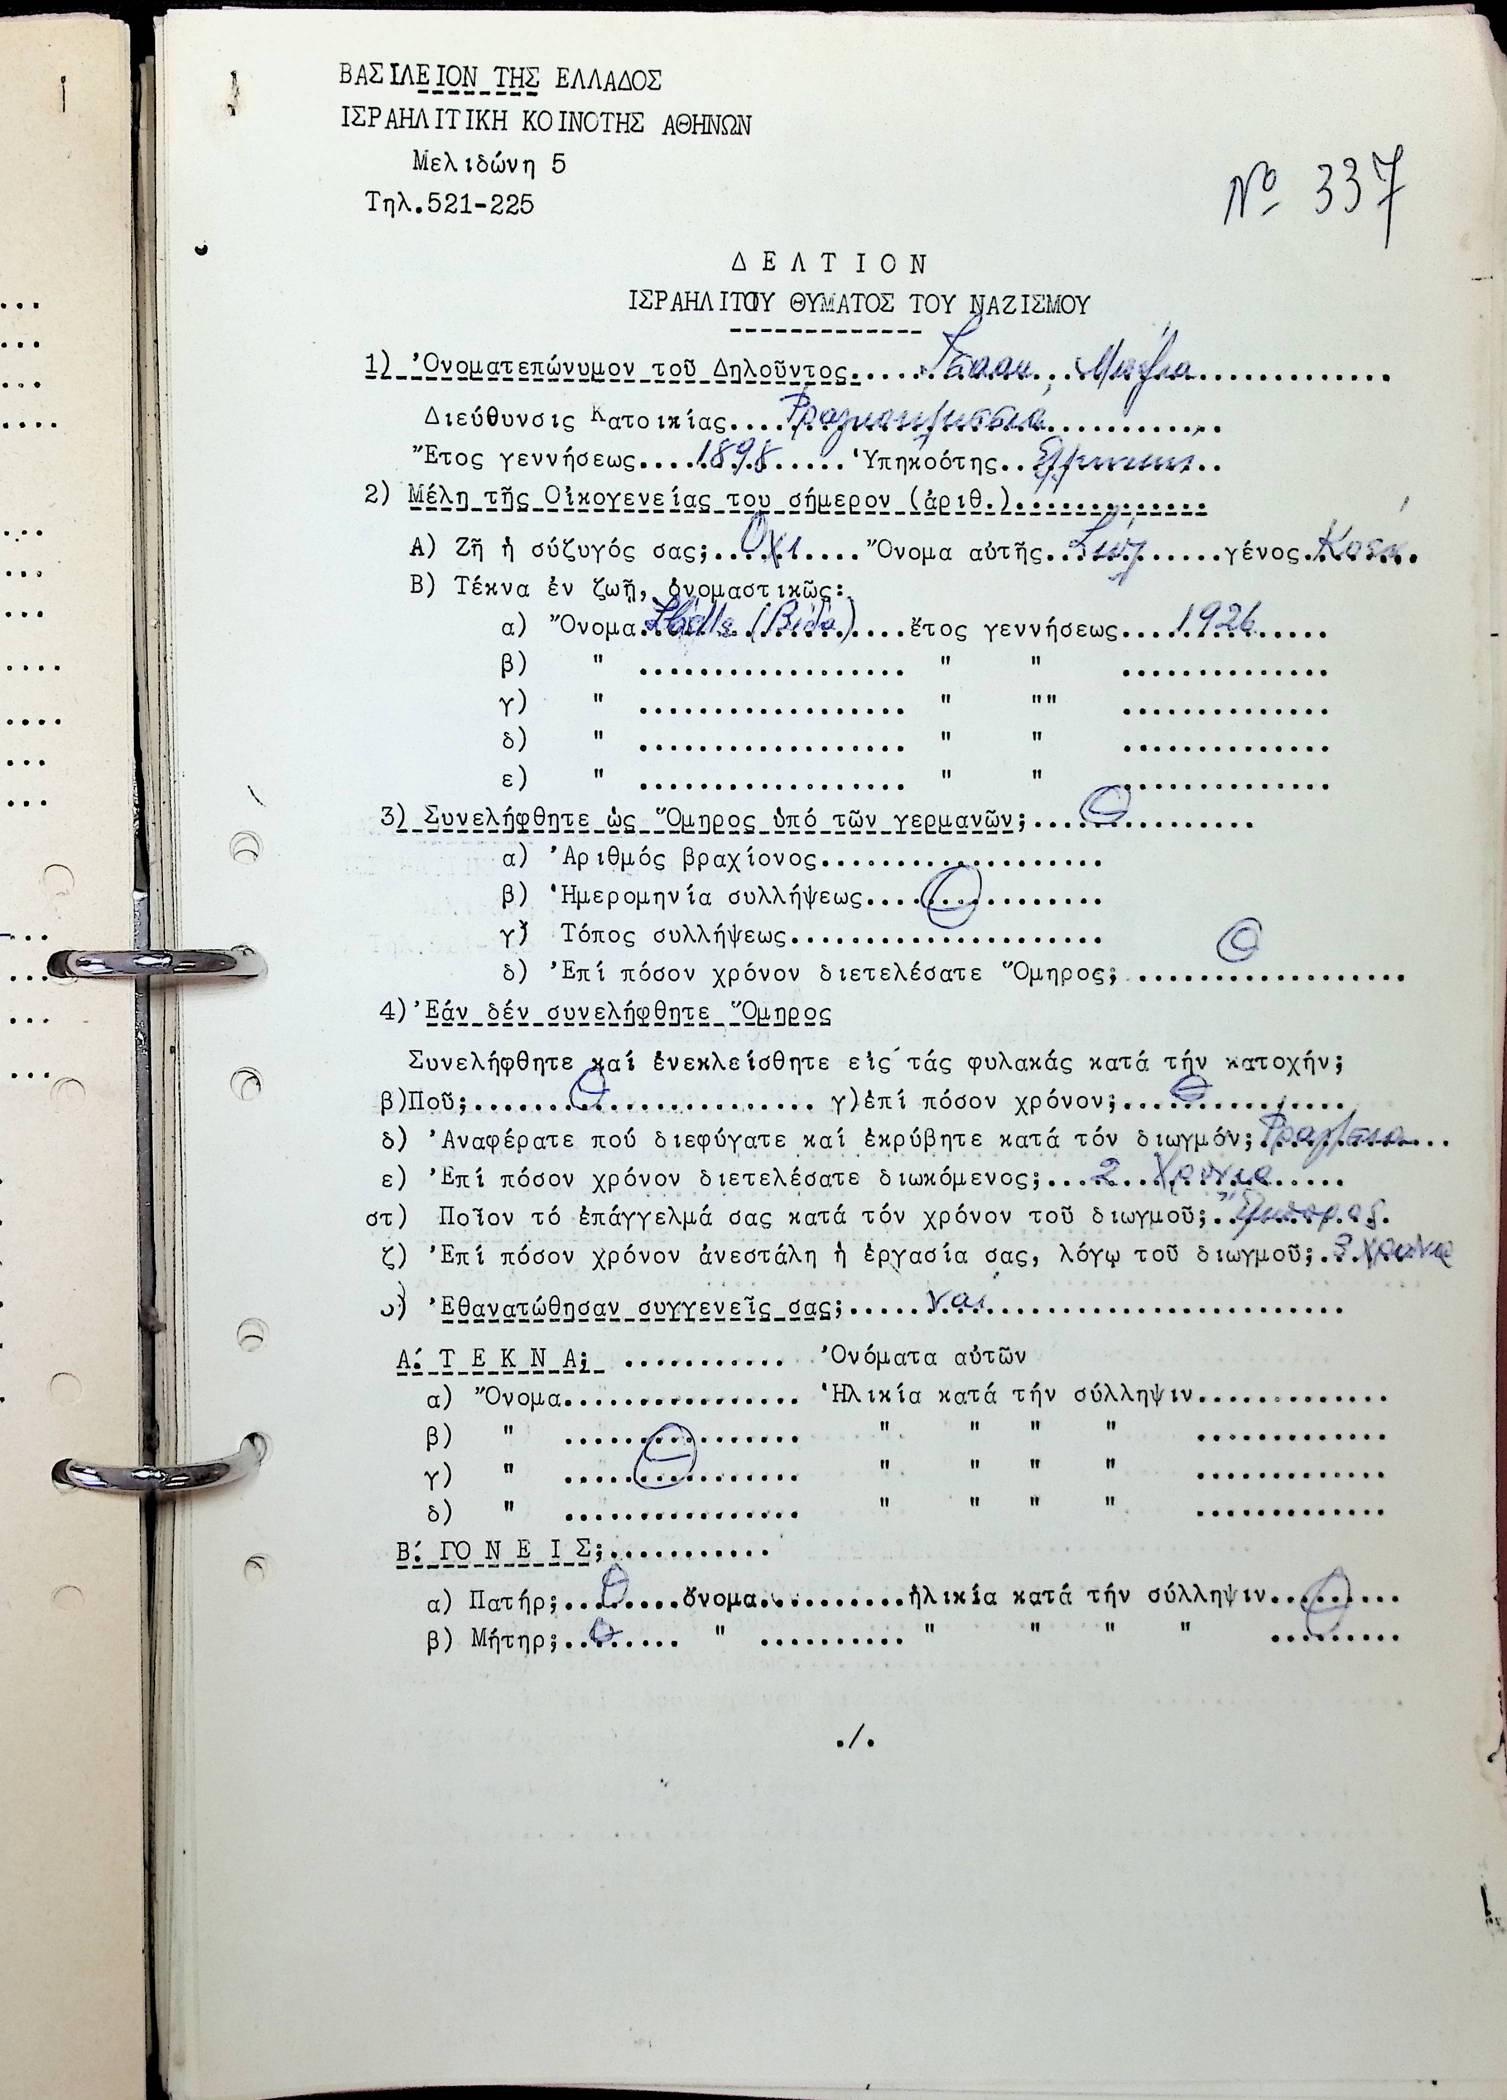 ΒΑΣΙΛΕΙΟΝ ΤΗΣ ΕΛΛΑΔΟΣ
ΙΣΡΑΗΛΙΤΙΚΗ ΚΟΙΝΟΤΗΣ ΑΘΗΝΩΝ
Μελιδώνη 5
Τηλ.521-225
Νο 337
Δ Ε Λ Τ Ι Ο Ν
ΙΣΡΑΗΛΙΤΟΥ ΘΥΜΑΤΟΣ ΤΟΥ ΝΑΖΙΣΜΟΥ
1) Ὀνοματεπώνυμον τοῦ Δηλοῦντος..... Ἰσαακ, ..........
Διεύθυνσις Κατοικίας..........
Ἔτος γεννήσεως....1898......Ὑπηκοότης..Ἑλληνική..
2) Μέλη τῆς Οἰκογενείας του σήμερον (ἀριθ.).............
Α) Ζῆ ἡ σύζυγός σας;...Ὄχι....Ὄνομα αὐτῆς..........γένος.Κοέν.
Β) Τέκνα ἐν ζωῇ, ὀνομαστικῶς:
α) Ὄνομα...(Βίδα)....ἔτος γεννήσεως....1926.....
β) " .................. " " ..............
γ) " .................. " "" ..............
δ) " .................. " " ..............
ε) " .................. " " ..............
3) Συνελήφθητε ὡς Ὅμηρος ὑπό τῶν γερμανῶν;...............
α) Ἀριθμός βραχίονος...................
β) Ἡμερομηνία συλλήψεως................
γ) Τόπος συλλήψεως.....................
δ) Ἐπί πόσον χρόνον διετελέσατε Ὅμηρος; ..................
4) Ἐάν δέν συνελήφθητε Ὅμηρος
Συνελήφθητε καί ἐνεκλείσθητε εἰς τάς φυλακάς κατά τήν κατοχήν;
β)Ποῦ;....................... γ)ἐπί πόσον χρόνον;...............
δ) Ἀναφέρατε πού διεφύγατε καί ἐκρύβητε κατά τόν διωγμόν;..........
ε) Ἐπί πόσον χρόνον διετελέσατε διωκόμενος;...2 χρόνια.....
στ) Ποῖον τό ἐπάγγελμά σας κατά τόν χρόνον τοῦ διωγμοῦ;.Ἔμπορος.
ζ) Ἐπί πόσον χρόνον ἀνεστάλη ἡ ἐργασία σας, λόγῳ τοῦ διωγμοῦ;.3 χρόνια
) Ἐθανατώθησαν συγγενεῖς σας;.....ναι........................
Α΄. Τ Ε Κ Ν Α; ........... Ὀνόματα αὐτῶν
α) Ὄνομα................ Ἡλικία κατά τήν σύλληψιν.............
β) " ................ " " " " .............
γ) " ................ " " " " .............
δ) " ................ " " " " .............
Β΄. ΓΟ Ν Ε Ι Σ;...........
α) Πατήρ;........ὄνομα..........ἡλικία κατά τήν σύλληψιν.........
β) Μήτηρ;........ " .......... " " " " .........
./.